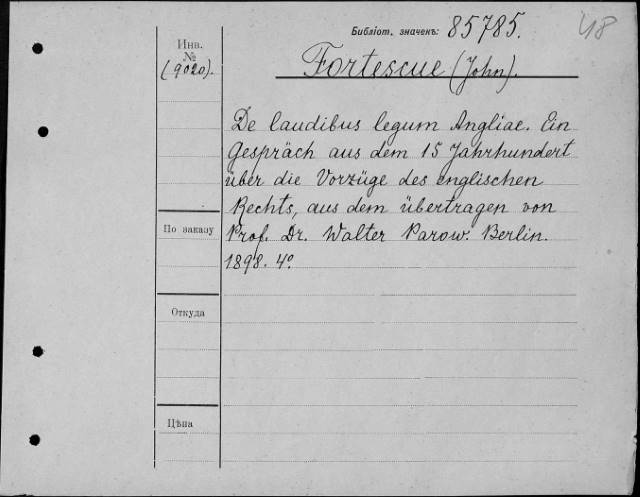 Библіот. значекъ: 85785.
48
Инв.
№
(9020).
Fortescue (John).
De laudibus legum Angliae. Ein
Gespräch aus dem 15 Jahrhundert
über die Vorzüge des englischen
Rechts, aus dem übertragen von
Prof. Dr. Walter Parow. Berlin.
1898. 4°.
По заказу
Откуда
Цѣна